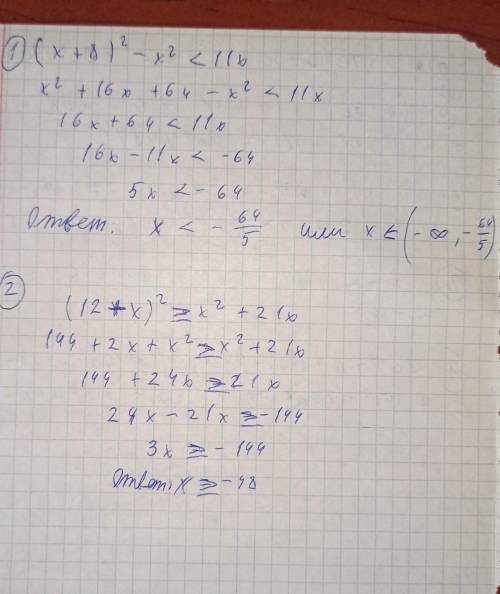 1) (x+8)² - x² < 11x
x² + 16x + 64 - x² < 11x
16x + 64 < 11x
16x - 11x < -64
5x < -64
Ответ: x < - 64/5 или x ∈ (-∞, -64/5)
2
(12+x)² ≥ x² + 21x
144 + 2x + x² ≥ x² + 21x
144 + 24x ≥ 21x
24x - 21x ≥ -144
3x ≥ -144
Ответ: x ≥ -48